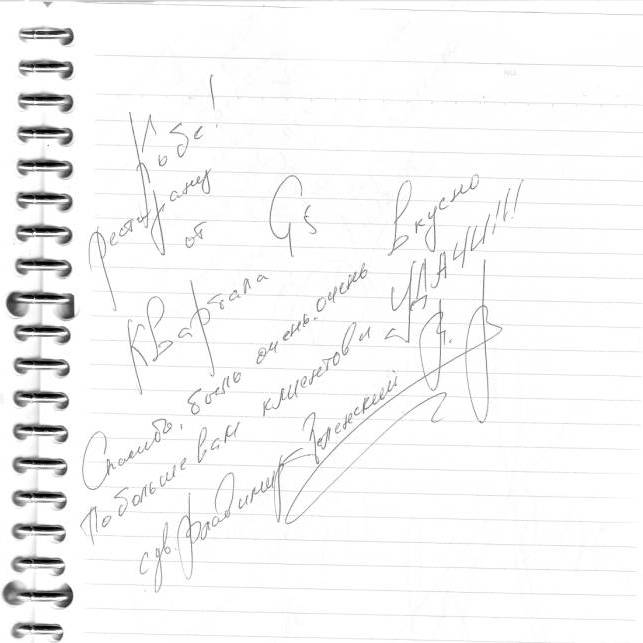 Кобе!
ресторану
от 95
Квартала
Спасибо, было очень, очень вкусно
Побольше вам клиентов и УДАЧИ!!!
с ув. Владимир Зеленский